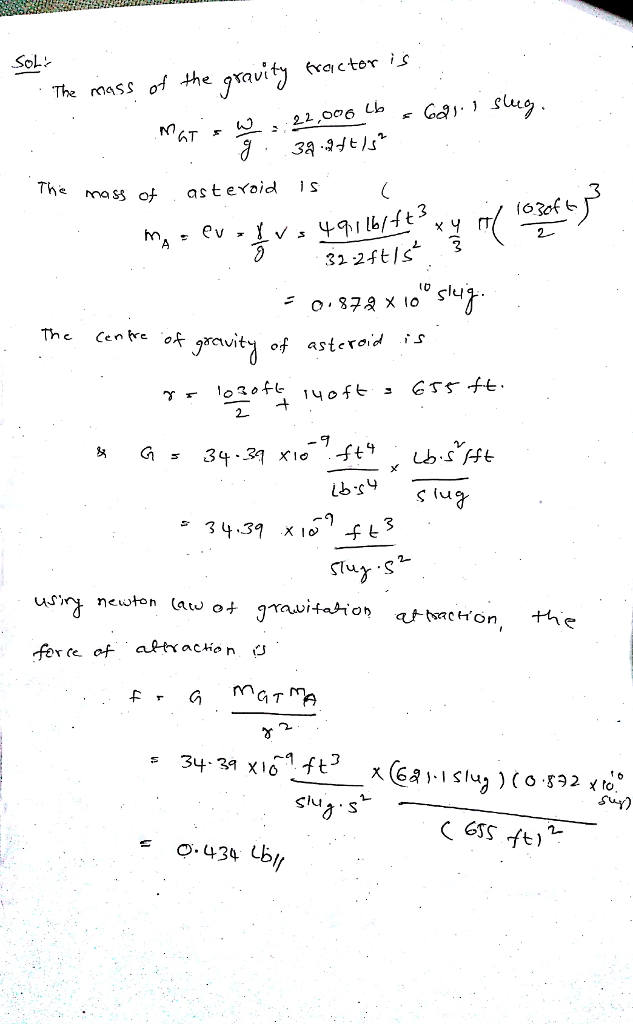 Sol:-
The mass of the gravity tractor is
mGT = w/g = 22,000 Lb / 32.2ft/s² = 621.1 slug.
The mass of asteroid is (
mA = ev = γ/g v = 491 lb/ft³ / 32.2ft/s² × 4/3 π (1030ft / 2)³
= 0.872 × 10¹⁰ slug.
The centre of gravity of asteroid is
r = 1030ft / 2 + 140ft = 655 ft.
& G = 34.39 × 10⁻⁹ ft⁴ / Lb·s⁴ × Lb·s²/ft / slug
= 34.39 × 10⁻⁹ ft³ / slug·s²
using newton law of gravitation attraction, the
force of attraction is
f = G mGT mA / r²
= 34.39 × 10⁻⁹ ft³ / slug·s² × (621.1 slug) (0.872 × 10¹⁰ slug) / (655 ft)²
= 0.434 Lb//